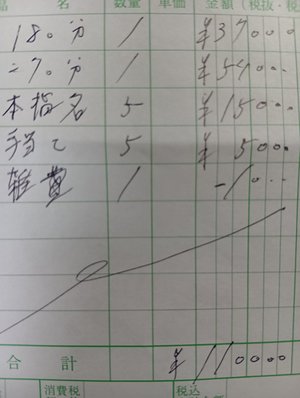 品名 数量 単価 金額(税抜・税
180分 1 ¥37000
270分 1 ¥54000
本指名 5 ¥15000
手当て 5 ¥5000
雑費 1 -1000
合計 ¥110000
消費税 税込